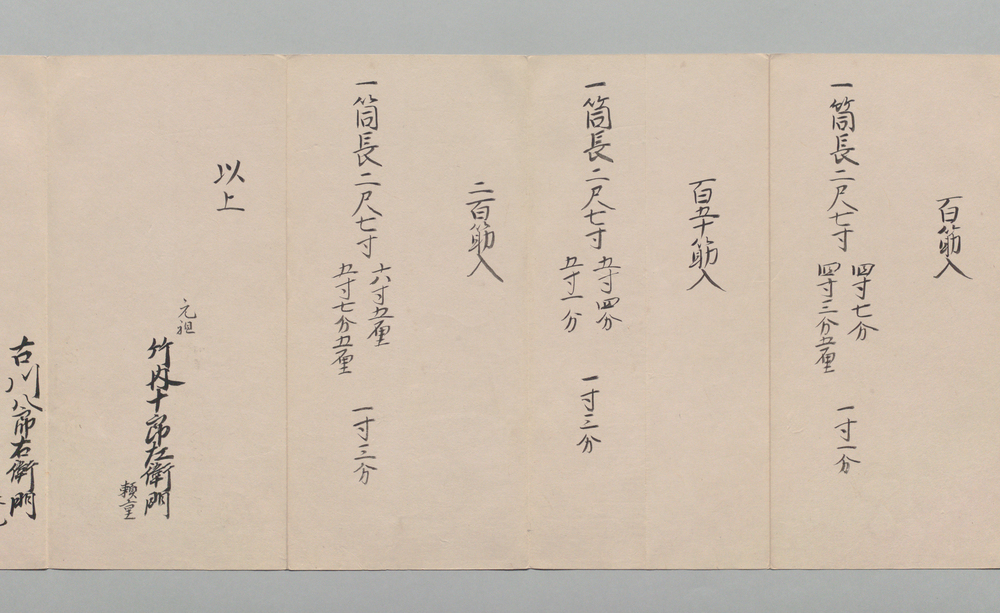 百筋入
一筒長二尺七寸
四寸七分
四寸三分五厘
一寸一分
百五十筋入
一筒長二尺七寸
五寸四分
五寸一分
一寸三分
二百筋入
一筒長二尺七寸
六寸五厘
五寸七分五厘
一寸三分
以上
元祖
竹内十郎左衛門
頼重
古川八郎右衛門